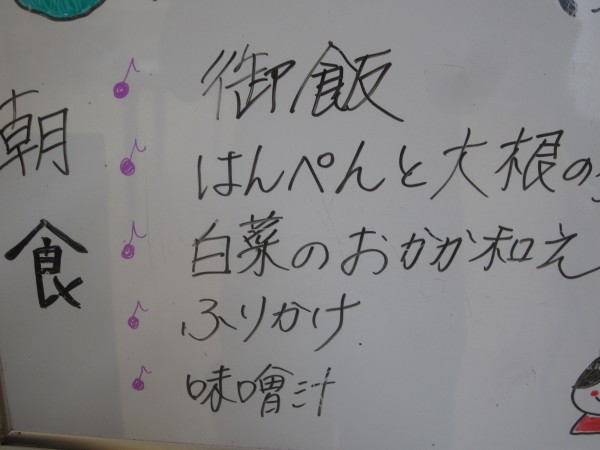 朝食
御飯
はんぺんと大根の
白菜のおかか和え
ふりかけ
味噌汁